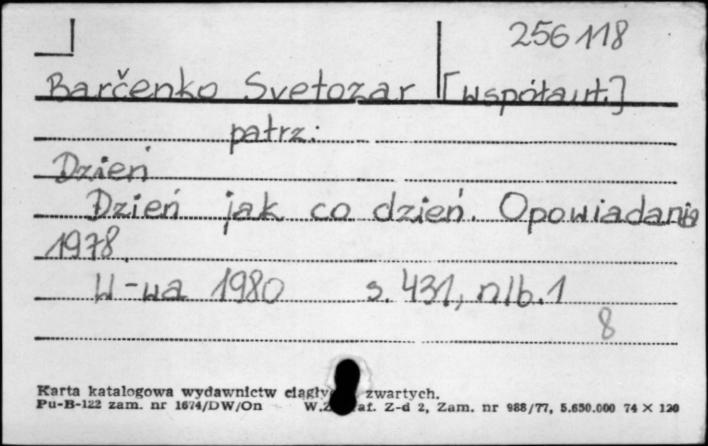 256118
Barčenko Svetozar [współaut.]
patrz:
Dzień
Dzień jak co dzień. Opowiadania
1978.
W-wa 1980 s. 431, nlb. 1
8
Karta katalogowa wydawnictw zwartych.
Pu-B-122 zam. nr 1674/DW/On Z-d 2, Zam. nr 988/77, 5.650.000 74 × 120